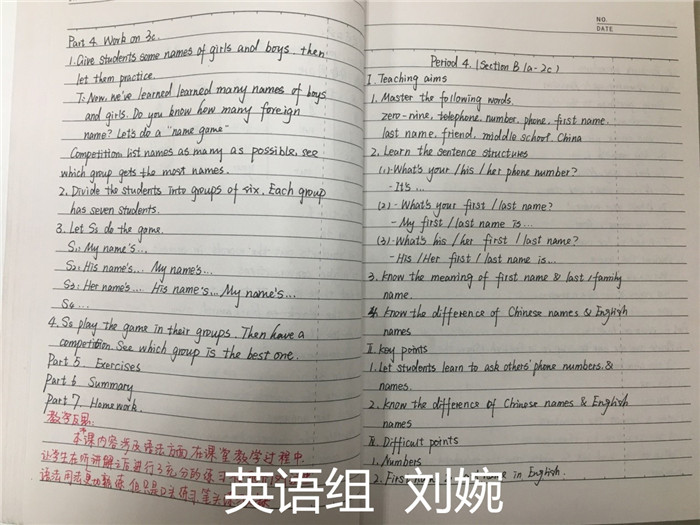 Part 4. Work on 3c.
1. Give students some names of girls and boys. then
let them practice.
T: Now, we've learned learned many names of boys
and girls. Do you know how many foreign
name? Let's do a "name game"
Competition: list names as many as possible, see
which group gets the most names.
2. Divide the students into groups of six. Each group
has seven students.
3. Let Ss do the game.
S1: My name's...
S2: His name's... My name's...
S3: Her name's... His name's... My name's...
S4 ...
4. Ss play the game in their groups. Then have a
competition. See which group is the best one.
Part 5. Exercises
Part 6 Summary
Part 7. Homework.
教学反思:
本课内容涉及语法方面,在课堂教学过程中
让学生在听讲解之后进行了充分的练习
语法用法更加熟练,但是
NO.
DATE
Period 4. (Section B 1a-2c)
I. Teaching aims
1. Master the following words.
zero-nine, telephone, number, phone, first name.
last name, friend, middle school, China
2. Learn the sentence structures
(1) - What's your / his / her phone number?
- It's ...
(2) - What's your first / last name?
- My first / last name is ...
(3) - What's his / her first / last name?
- His / Her first / last name is ...
3. Know the meaning of first name & last / family
name.
4. Know the difference of Chinese names & English
names
II. Key points
1. Let students learn to ask others' phone numbers. &
names.
2. Know the difference of Chinese names & English
names
III. Difficult points
1. Numbers
2. First name name in English.
英语组 刘婉